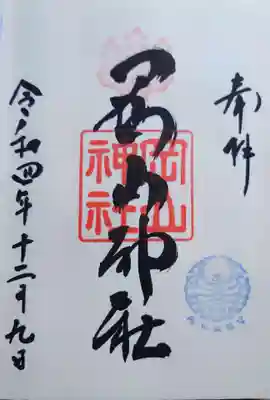 奉拝
岡山神社
岡山神社
令和四年十二月九日